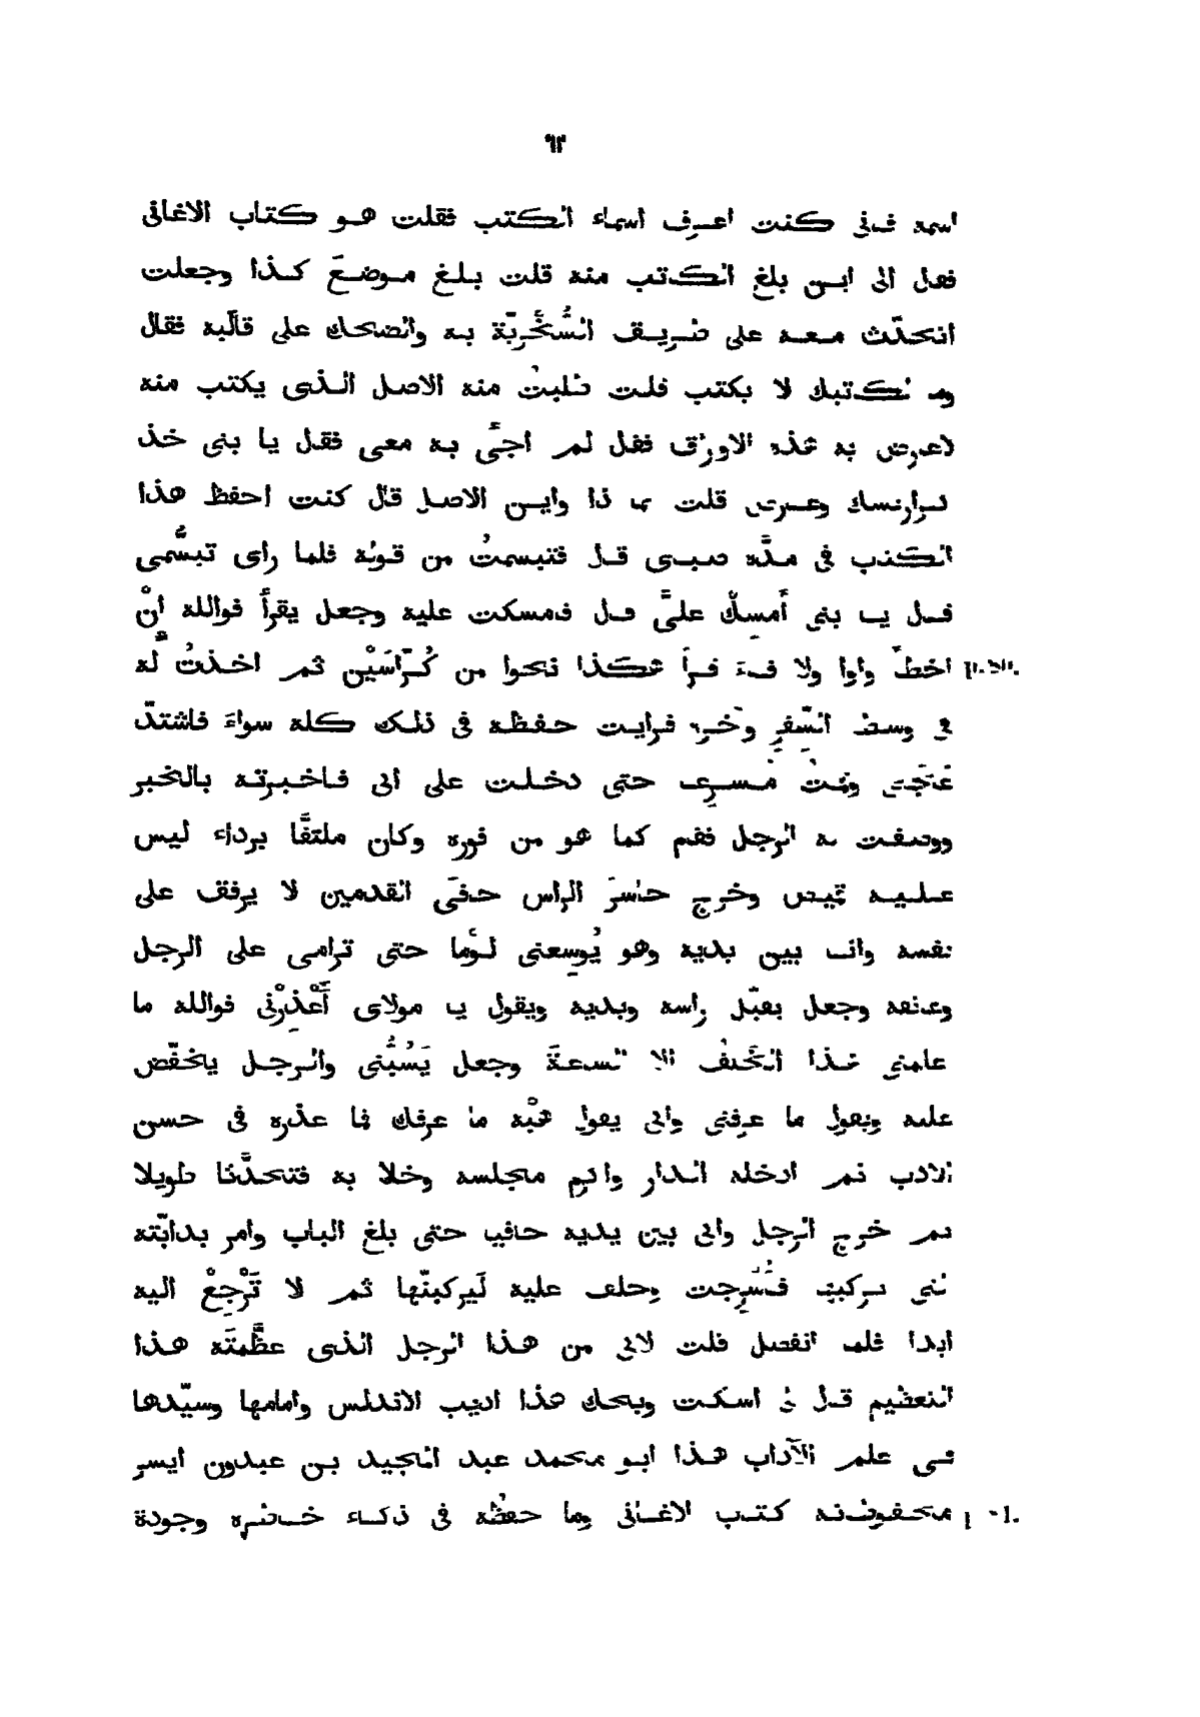 ٦٢
اسمه فانى كنت اعرف اسماء الكتب فقلت هو كتاب الاغانى
فقال الى اين بلغ الكاتب منه قلت بلغ موضعَ كذا وجعلت
اتحدّث معه على طريق السُّخْرِيّة به والضحك على قالَبه فقال
وما لكاتبك لا يكتب قلت طلبتُ منه الاصل الذى يكتب منه
لاعارض به هذه الاوراق فقال لم اجئْ به معى فقال يا بنى خذ
كراريسك وعارض قلت بما ذا واين الاصل قال كنت احفظ هذا
الكتاب فى مدّة صباى قال فتبسمتُ من قوله فلما راى تبسُّمى
قال يا بنى أَمسِكْ علىَّ قال فامسكت عليه وجعل يقرأُ فواللّه اِنْ
اخطأَ واوا ولا فاءً قرأَ هكذا نحوا من كُرّاسَيْن ثم اخذتُ له
فى وسط السِّفرِ وآخرِه فرايت حفظه فى ذلك كله سواءً فاشتدّ
عَجَبى وقمتُ مُسرِعا حتى دخلت على ابى فاخبرته بالخبر
ووصفت له الرجل فقام كما هو من فوره وكان ملتفًّا برداء ليس
عليه قميص وخرج حاسرَ الراس حافىَ القدمين لا يرفق على
نفسه وانا بين يديه وهو يُوسِعنى لوْما حتى ترامى على الرجل
وعانقه وجعل يقبّل راسه ويديه ويقول يا مولاى أَعْذِرْنى فواللّه ما
علمنى هذا الخَلفُ الا الساعةَ وجعل يَسُبُّنى والرجل يخفّض
عليه ويقول ما عرفنى وابى يقول هَبْه ما عرفك فما عذره فى حسن
الادب ثم ادخله الدار واكرم مجلسه وخلا به فتحدَّثا طويلا
ثم خرج الرجل وابى بين يديه حافيا حتى بلغ الباب وامر بدابّته
التى يركبها فأُسْرِجت وحلف عليه لَيركبنّها ثم لا تَرْجِعْ اليه
ابدا فلما انفصل قلت لابى من هذا الرجل الذى عظَّمتَه هذا
التعظيم قال لى اسكت ويحك هذا اديب الاندلس وامامها وسيّدها
فى علم الآداب هذا ابو محمد عبد المجيد بن عبدون ايسر
محفوظاته كتاب الاغانى وما حفظُه فى ذكاء خاطره وجودة